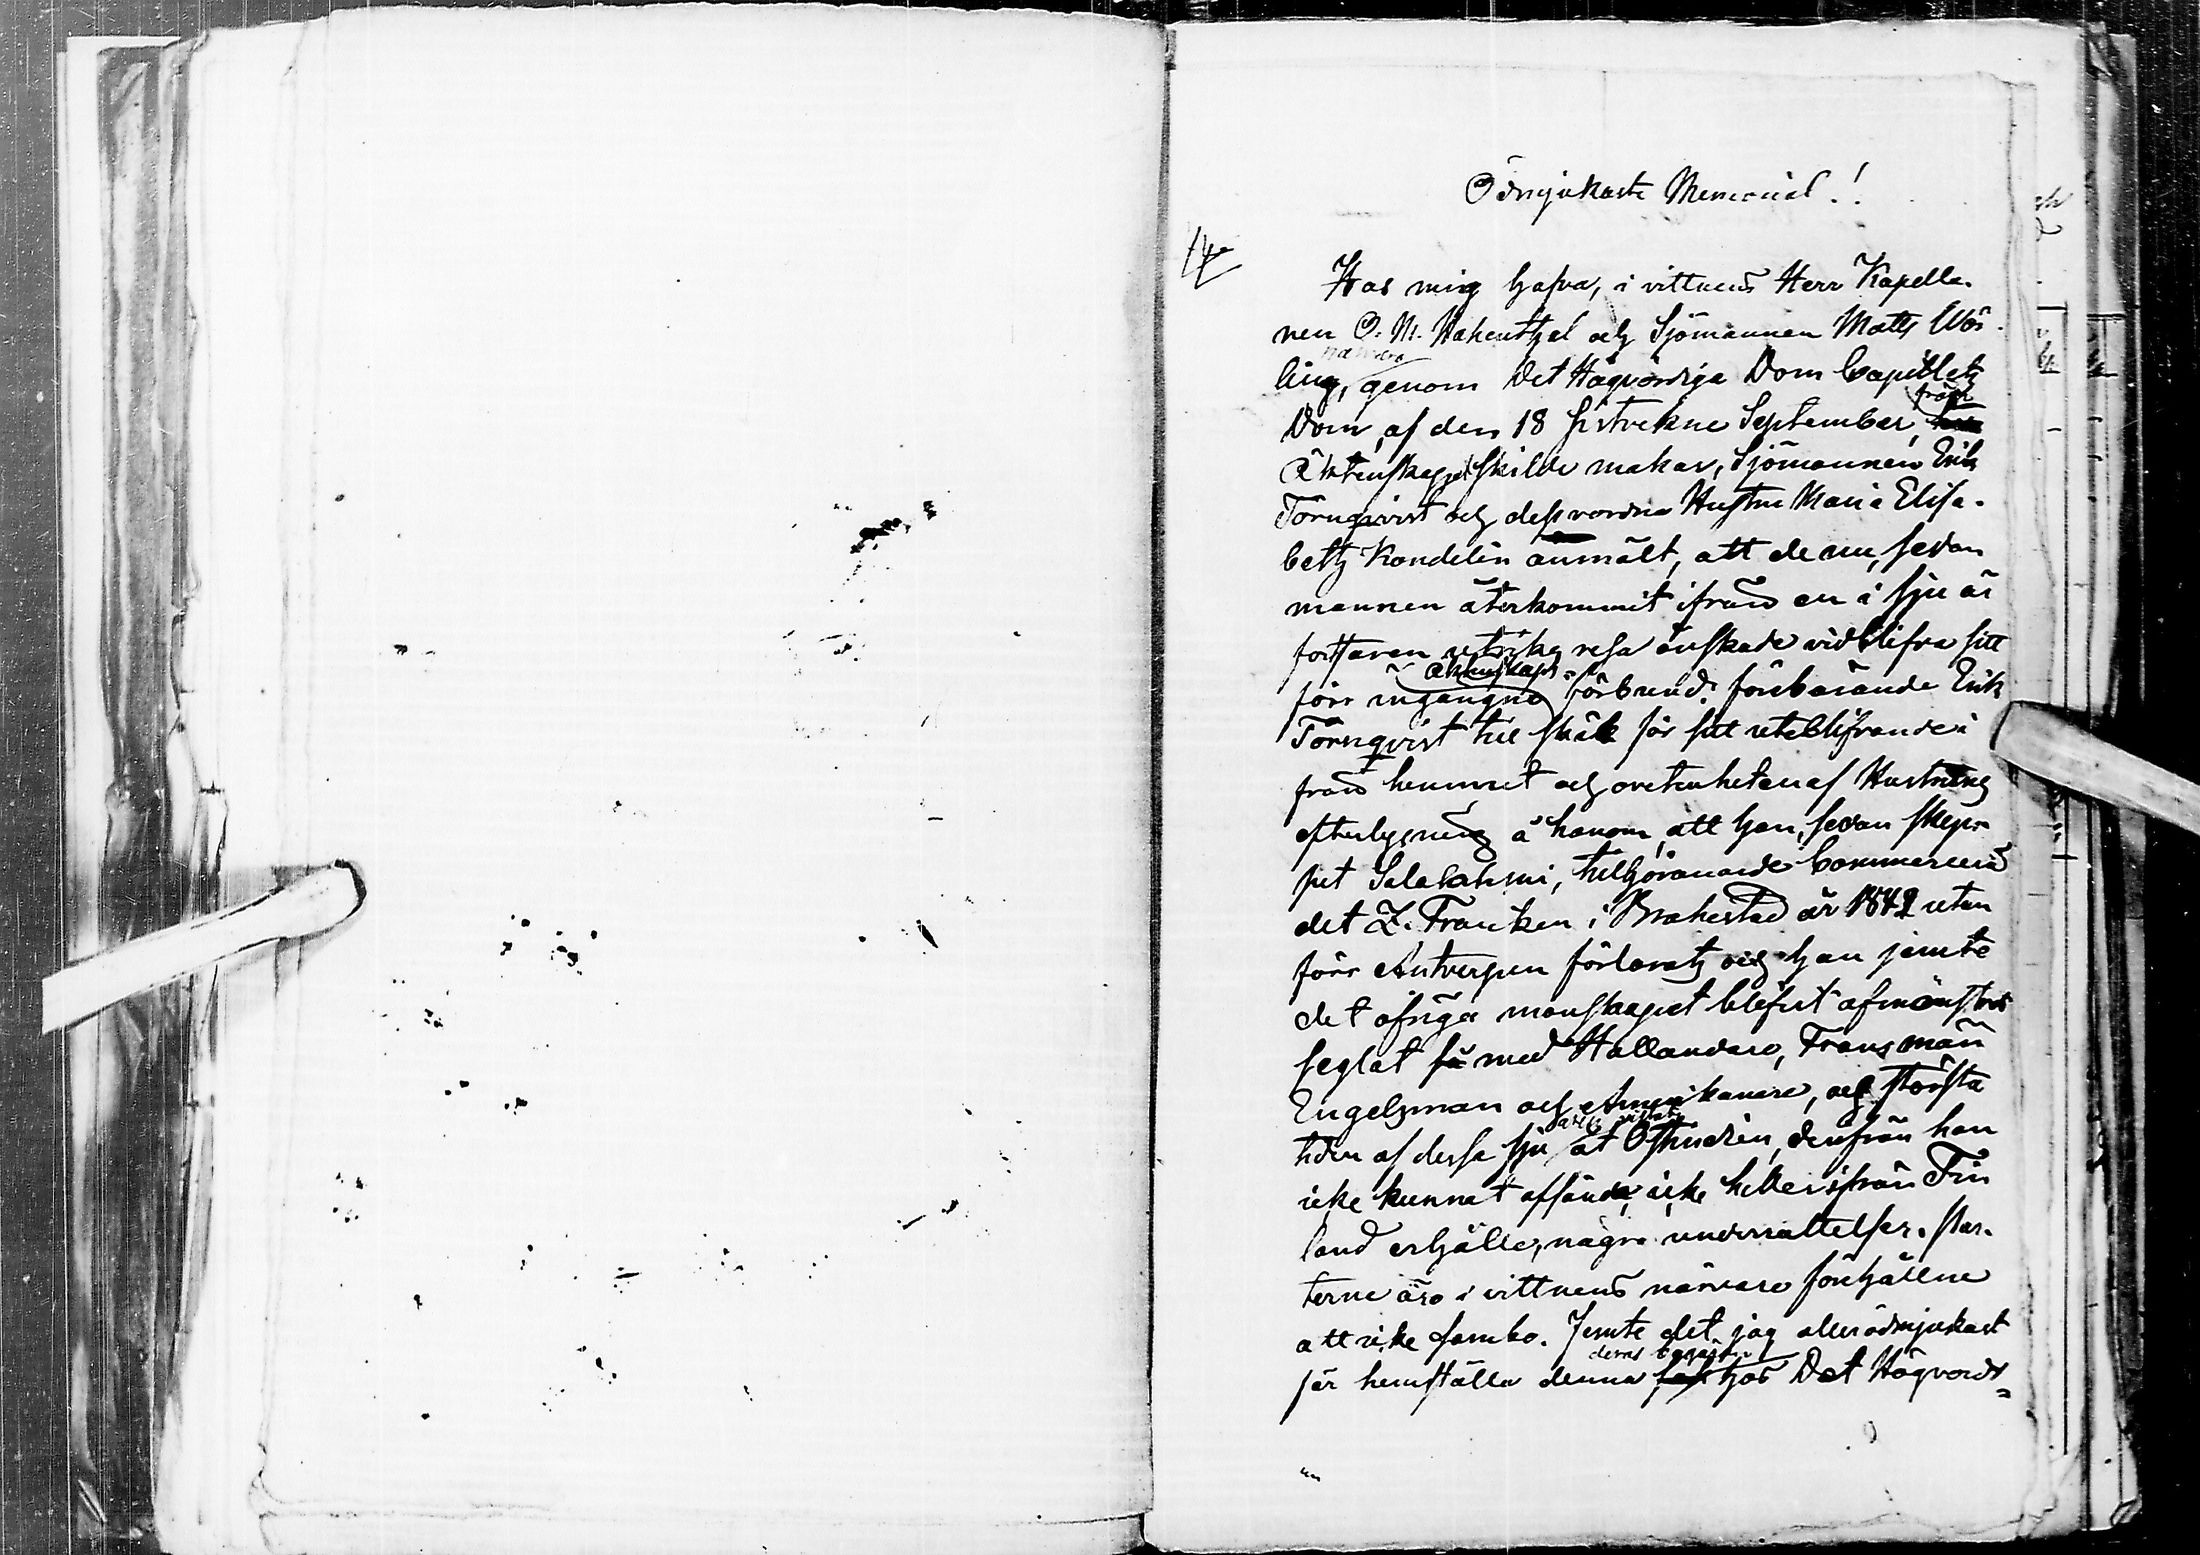 Ödmjukaste Memorial.!
14
Hos mig hafva, i vittnens Herr Kapella-
nen O. M. och Sjömannen Matts Wös-
närvaro
ling, genom Det Högvördiga Dom Capitlets
från
Dom, af den 18 sistvekne September,
Äktenskapet skilde makar, Sjömannen Erik
Törnqvist och dess vordna Hustru Maria Elisa-
beth Kondelin anmält, att de nu, sedan
mannen återkommit ifrån en i sju år
fortfaren utrikes resa önskade vidblifva sitt
Äktenskaps-
förr ingångna förbund: förebärande Erik
Törnqvist till skäl för sitt uteblifvande i
från hemmet och ovetenheten af Hustruns
efterlysning å honom, att han, sedan skep-
pet Salakahmi, tillhöranande Commercerå
det Z. Francken i Brahestad år 1842 utan
förr Antverpen förlorats och han jemte
det öfriga manskapet blefvit afmönstrad
seglat få med Hollandare, Fransmän
Engelsman och Amerikanare, och största
vistats
tiden af dessa sju åt Ostindien, derifrån han
icke kunnat affända, icke heller ifrån Fin
land erhålla, några underrättelser. Par-
terne äro i vittnens närvaro förehållne
att icke sambo. Jemte det jag allerödmjukast
deras begäran
får hemställa denna hos Det Högvörd=